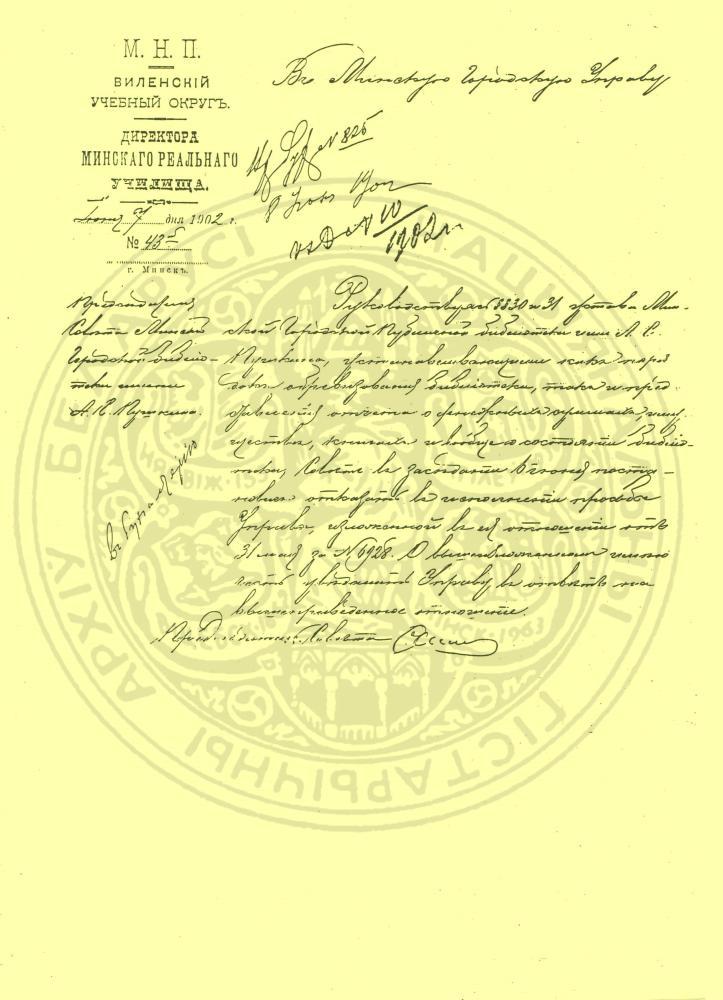 М. Н. П.
ВИЛЕНСКІЙ
УЧЕБНЫЙ ОКРУГЪ.
ДИРЕКТОРА
МИНСКАГО РЕАЛЬНАГО
УЧИЛИЩА.
Іюня 7 дня 1902 г.
№ 435
г. Минскъ.
Въ Минскую Городскую Управу
№ 825
8 Іюня 1902
10
1902 г.
Предсѣдатель
Совѣта Минской
Городской библіо-
теки имени
А. С. Пушкина.
Руководствуясь §§ 30 и 31 устава Мин-
ской Городской Публичной библіотеки им. А. С.
Пушкина, устанавливающими какъ поря
докъ ревизованія библіотеки, такъ и пред
ставленія отчета о суммахъ, иму
ществѣ, книгахъ и вообще о состояніи библіо
теки, Совѣтъ въ засѣданіи 6 іюня поста-
новилъ отказать въ исполненіи просьбы
Управы, изложенной въ ея отношеніи отъ
31 мая за № 6928. О вышеизложенномъ имѣю
честь увѣдомить Управу въ отвѣтъ на
вышеприведенное отношеніе.
Предсѣдатель Совѣта
АРХІЎ БЕЛАРУСІ
ГІСТАРЫЧНЫ
1963